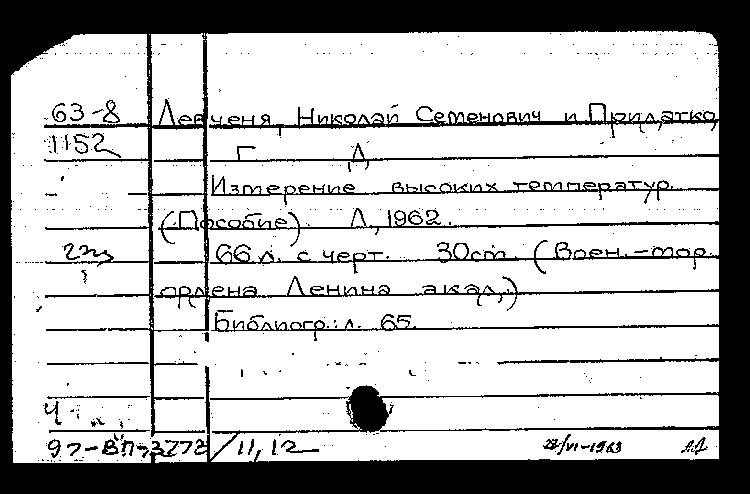 63-8 Левченя, Николай Семенович и Придатко,
1152 Г Д
Измерение высоких температур.
(Пособие). Л, 1962.
66 л. с черт. 30cm. (Воен.-мор.
ордена Ленина акад.)
Библиогр.: л. 65.
Ч
97-ВП-3778/11,12
28/VI-1963